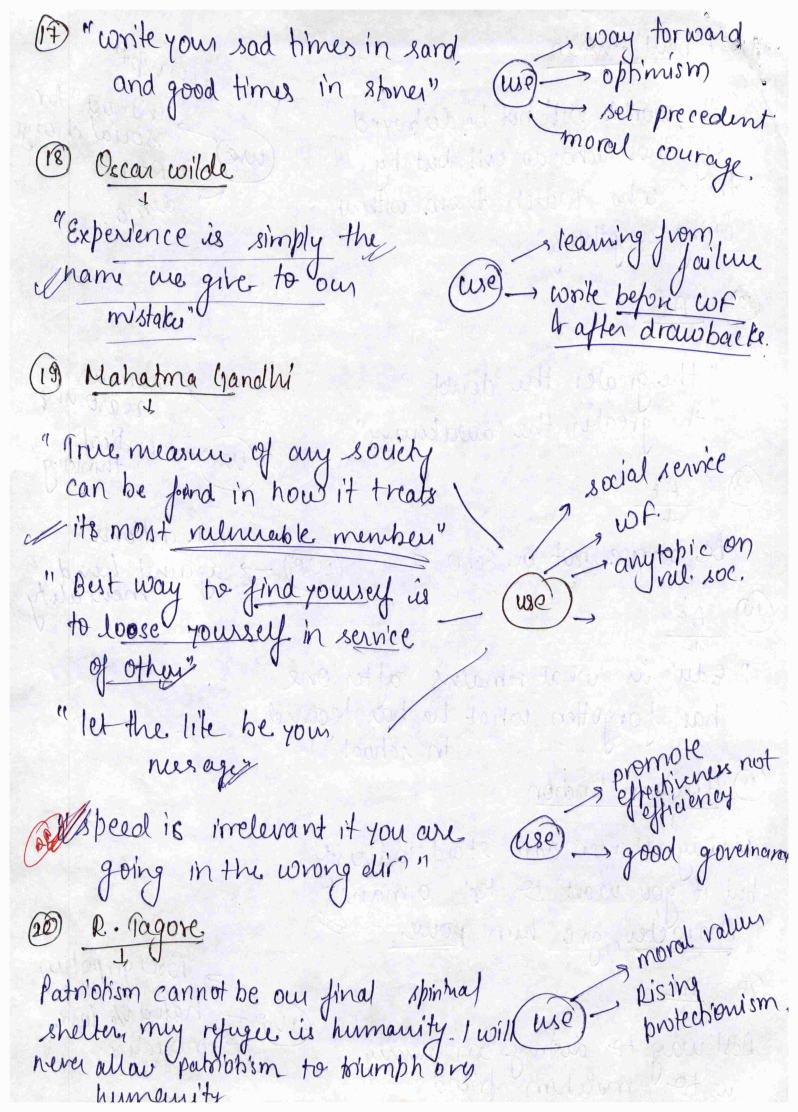 17 "write your sad times in sand,
and good times in stones"
use → way forward
→ optimism
→ set precedent
moral courage.
18 Oscar wilde
↓
"Experience is simply the
name we give to our
mistakes"
use → learning from
failure
→ write before WF
& after drawbacks.
19 Mahatma Gandhi
↓
"True measure of any society
can be found in how it treats
its most vulnerable members"
"Best way to find yourself is
to loose yourself in service
of others"
"let the life be your
message"
use → social service
→ WF.
→ any topic on
vul. soc.
→
"speed is irrelevant if you are
going in the wrong dirn"
use → promote
effectiveness not
efficiency
→ good governance
20 R. Tagore
↓
Patriotism cannot be our final spiritual
shelter, my refugee is humanity. I will
never allow patriotism to triumph over
humanity
use → moral values
Rising
protectionism.